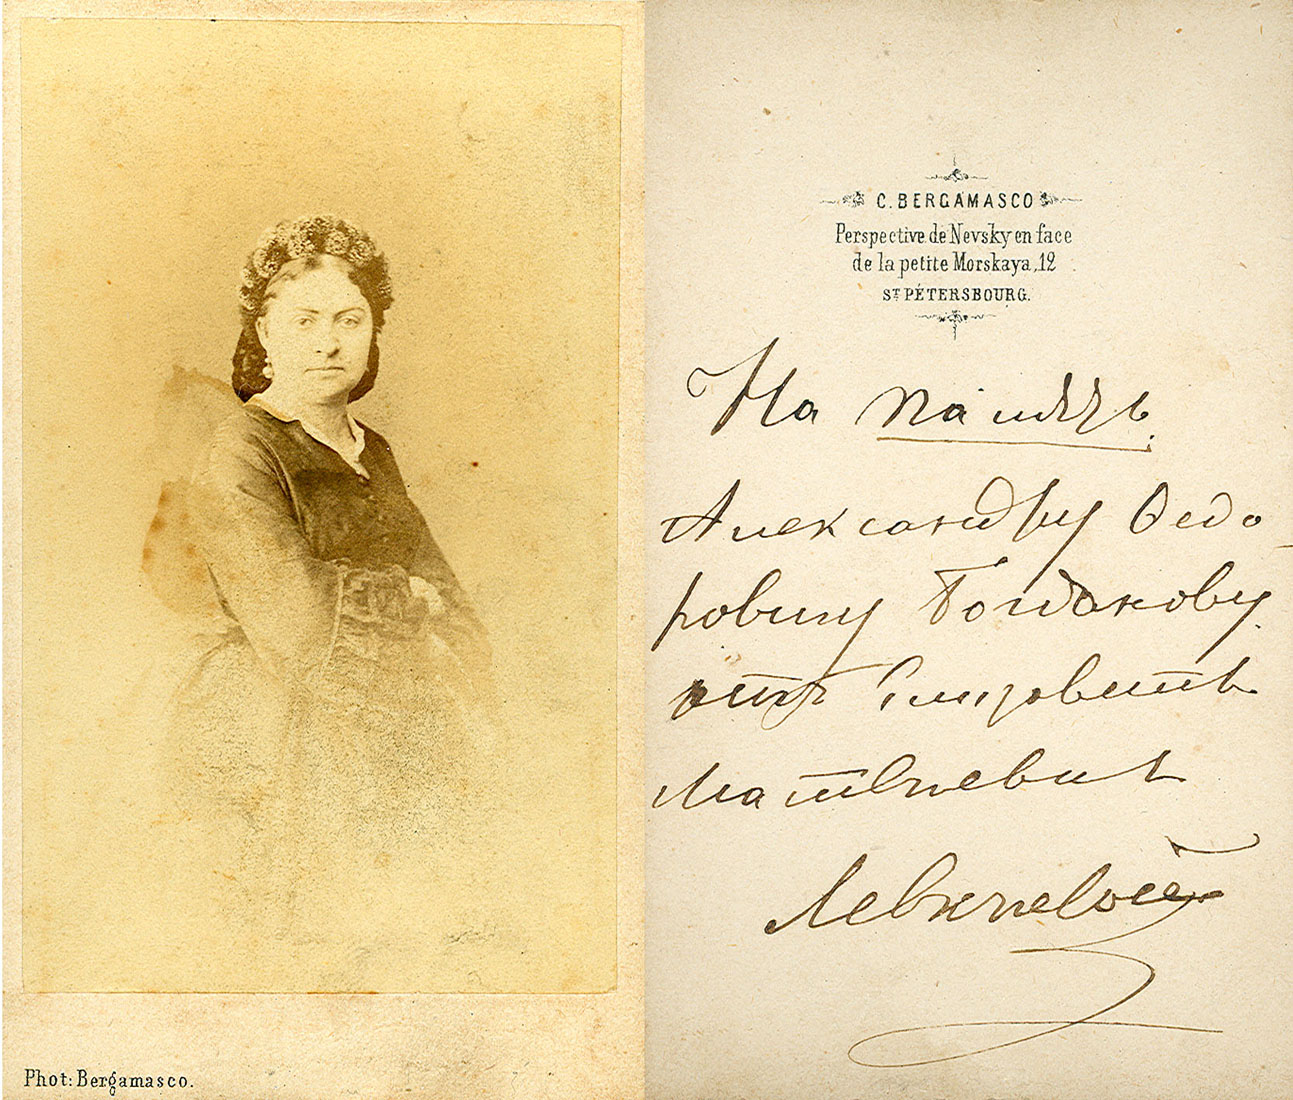 C. BERGAMASCO
Perspective de Nevsky en face
de la petite Morskaya, 12
ST PÉTERSBOURG.
На память
Александру Ѳедо-
ровичу Богданову
отъ Елизоветы
Матвѣевны
Левкѣевой
Phot: Bergamasco.